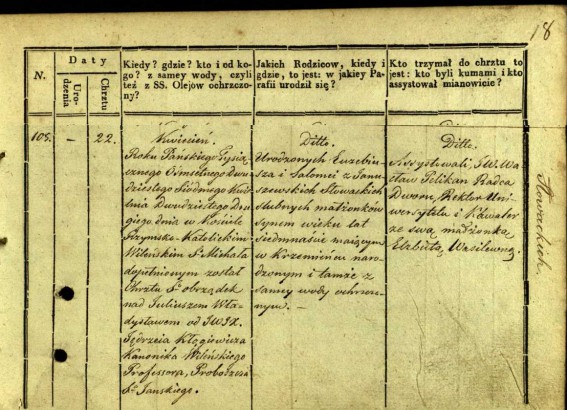 18
N.
Daty
Urodzenia
Chrztu
Kiedy? gdzie? kto i od ko-
go? z samey wody, czyli
też z SS. Olejow ochrzczo-
ny?
Jakich Rodzicow, kiedy i
gdzie, to jest: w jakiey Pa-
rafii urodził się?
Kto trzymał do chrztu to
jest: kto byli kumami i kto
assystował mianowicie?
108.
–
22.
Kwiecień.
Roku Pańskiego Tysią-
cznego Ośmsetnego Dwu-
dziestego Siódmego Kwie-
tnia Dwudziestego Dru-
giego dnia w Kościele
Rzymsko-Katolickim
Wileńskim Sº Michała
dopełnionym został
Chrztu Sº obrządek
nad Juliuszem Wła-
dysławem od JWJX.
Jędrzeia Kłągiewicza
Kanonika Wileńskiego
Professora, Proboszcza
Sº Jańskiego.
Ditto.
Urodzonych Euzebiu-
sza i Salomei z Janu-
szewskich Słowackich
ślubnych małżonków
synem wieku lat
siedmnaście maiącym
w Krzemieńcu naro-
dzonym i tamże z
samey wody ochrzczo-
nym. –
Ditto.
Assystowali, JW. Wa-
cław Pelikan Radca
Dworu, Rektor Uni-
wersytetu i Kawaler
ze swą małżonką
Elżbietą Wasilewną.
Słowackich